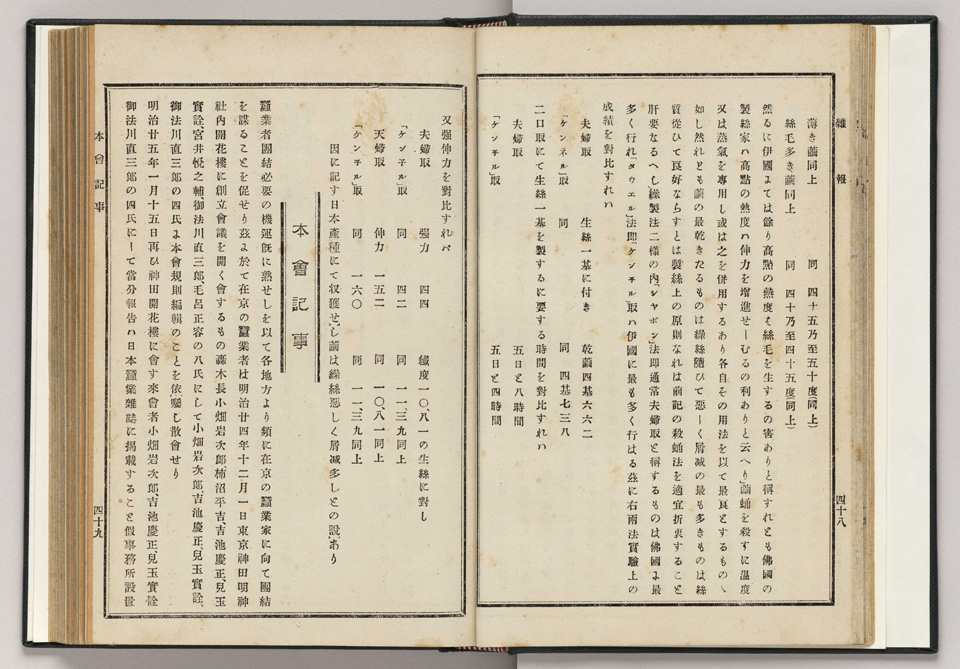 雜報
四十八
薄き繭同上 同 四十五乃至五十度同上)
絲毛多き繭同上 同 四十乃至四十五度同上)
然るに伊國よては餘り高點の熱度も絲毛を生するの害ありと稱すれとも佛國の
製絲家ハ高點の熱度ハ伸力を增進せーむるの利ありと云へり、繭蛹を殺すに溫度
又は蒸氣を專用し或は之を併用するあり各自その用法を以て最良とするものヽ
如し然れとも繭の最乾きたるものは繰絲隨ひて惡ーく屑減の最も多きものは絲
質從ひて良好ならすとは製絲上の原則なれは前記の殺蛹法を適宜折衷すること
肝要なるへし、繰製法二樣の內「シヤボン」法即通常夫婦取と稱するものは佛國よ最
多く行れ「タウエル」法即「ケンチル」取ハ伊國に最も多く行はる玆に右兩法實驗上の
成績を對比すれハ
夫婦取 生絲一基に付き 乾繭四基六六二
「ケンネル」取 同 同 四基七三八
二口取にて生絲一基を製するに要する時間を對比すれハ
夫婦取 五日と八時間
「ケンチル」取 五日と四時間
又强伸力を對比すれハ
夫婦取 强力 四四 纎度一〇、八一の生絲に對し
「ケンチル」取 同 四二 同 一一、三九同上
天婦取 伸力 一五二 同 一〇、八一同上
「ケンチル」取 同 一六〇 同 一一、三九同上
因に記す日本產種にて収獲せし繭は繰絲惡しく屑減多しとの說あり
本會記事
蠶業者團結必要の機運旣に熟せしを以て各地方より頻に在京の蠶業家に向て團結
を謀ることを促せり玆よ於て在京の蠶業者は明治廿四年十二月一日東京神田明神
社內開花樓に創立會議を開く會するもの轟木長小畑岩次郎柿沼平吉、吉池慶正、兒玉
實詮宮井悅之輔御法川直三郎毛呂正容の八氏にして小畑岩次郎、吉池慶正、兒玉實詮、
御法川直三郎の四氏よ本會規則編輯のことを依囑し散會せり
明治廿五年一月十五日再ひ神田開花樓に會す來會者小畑岩次郎、吉池慶正、兒玉實詮
御法川直三郎の四氏にーて當分報告ハ日本蠶業雜誌に揭載すること假事務所設置
本會記事
四十九